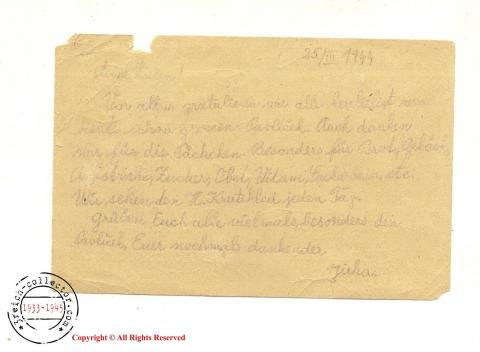 25/III 1944
Vor allem gratulieren wir alle herzlichst zum
heute schon grossen Pavlíček. Auch danken
wir für die Päckchen. Besonders für Brot,
Zucker, Obst, Vitam, etc.
Wir sehen den H. jeden Tag.
Grüssen Euch alle vielmals, besonders den
Pavlíček, Euer nochmals dankender
Jirka.
3reich-collector.com
1933-1945
Copyright © All Rights Reserved